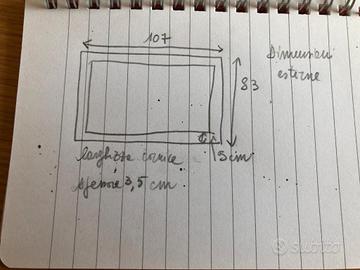 107
Dimensioni
esterne
83
5cm
larghezza cornice
spessore 3,5 cm
subito